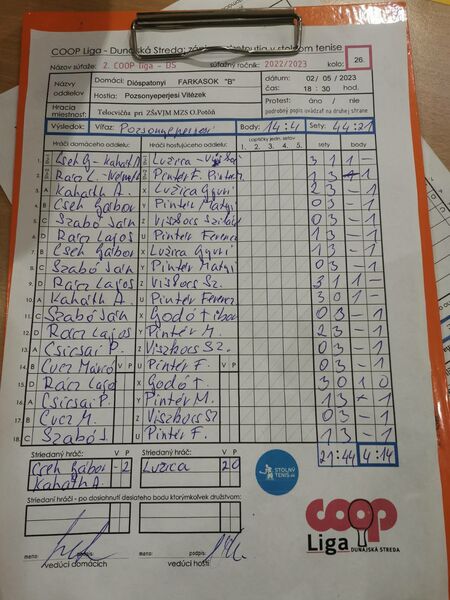 COOP Liga - Dunajská Streda: zápis o stretnutí v stolnom tenise
Názov súťaže: 2. COOP liga - DS súťažný ročník: 2022/2023 kolo: 26.
Názvy oddielov
Domáci: Dióspatonyi FARKASOK "B"
Hostia: Pozsonyeperjesi Vitézek
dátum: 02 / 05 / 2023
čas: 18 : 30 hod.
Hracia miestnosť: Telocvičňa pri ZŠsVJM MZS O.Potôň
Protest: áno / nie
podrobný popis uvádzať na druhej strane
Výsledok: Víťaz: Pozsonyeperjesi Body: 14:4 Sety: 44:21
Hráči domáceho oddielu: Hráči hosťujúceho oddielu: Loptičky jedn. setov sety body
1. 2. 3. 4. 5.
1. Cseh G - Kaháth A. Luzica - 3 1 1 -
2. Rácz L - Pintér F. Pintér 1 3 - 1
3. A Kaháth A. X Luzica Gyuri 2 3 - 1
4. B Cseh Gábor Y Pintér Matyi 0 3 - 1
5. C Szabó Ján Z Viszkocs Szilárd 0 3 - 1
6. D Rácz Lajos U Pintér Ferenc 1 3 - 1
7. B Cseh Gábor X Luzica Gyuri 1 3 - 1
8. C Szabó Ján Y Pintér Matyi 0 3 - 1
9. D Rácz Lajos Z Viszkocs Sz. 3 1 1 -
10. A Kaháth A. U Pintér Ferenc 3 0 1 -
11. C Szabó Ján X Godó Tibor 0 3 - 1
12. D Rácz Lajos Y Pintér M. 2 3 - 1
13. A Csicsai P. Z Viszkocs Sz. 0 3 - 1
14. B Cucz Marco V P U Pintér F. V P 0 3 - 1
15. D Rácz Lajo X Godó T. 3 0 1 0
16. A Csicsai P. Y Pintér M. 1 3 - 1
17. B Cucz M. Z Viszkocs Sz 0 3 - 1
18. C Szabó J. U Pintér F. 1 3 - 1
Striedaný hráč: V P Striedaný hráč: V P 21:44 4:14
Cseh Gábor - 2 Luzica 2 0
Kaháth A.
STOLNÝ TENIS
Striedaní hráči - po dosiahnutí desiateho bodu ktorýmkoľvek družstvom:
V P V P
coop
Liga DUNAJSKÁ STREDA
meno: podpis: meno: podpis:
vedúci domácich vedúci hostí